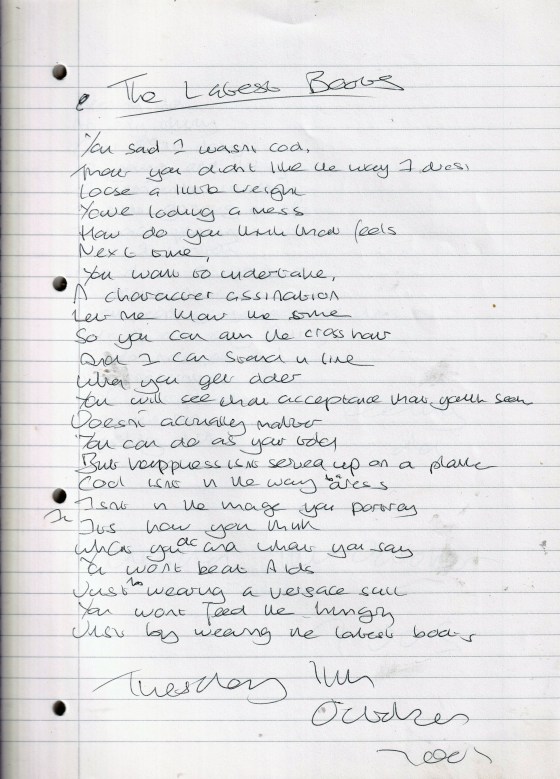 The Latest Boots
You said I wasnt cool,
That you didnt like the way I dress
Loose a little weight
Youre looking a mess
How do you think that feels
Next time,
You want to undertake,
A character assination
Let me know the time
So you can aim the crosshair
And I can stand in line
When you get older
You will see that acceptance that youth seek
Doesnt actually matter
You can do as your told
But happiness isnt served up on a plate
Cool isnt in the way to dress
Isnt in the image you portray
Its how you think
What you do and what you say
You wont beat Aids
Just by wearing a versace suit
You wont feed the hungry
Just by wearing the latest boots
Tuesday 11th
October